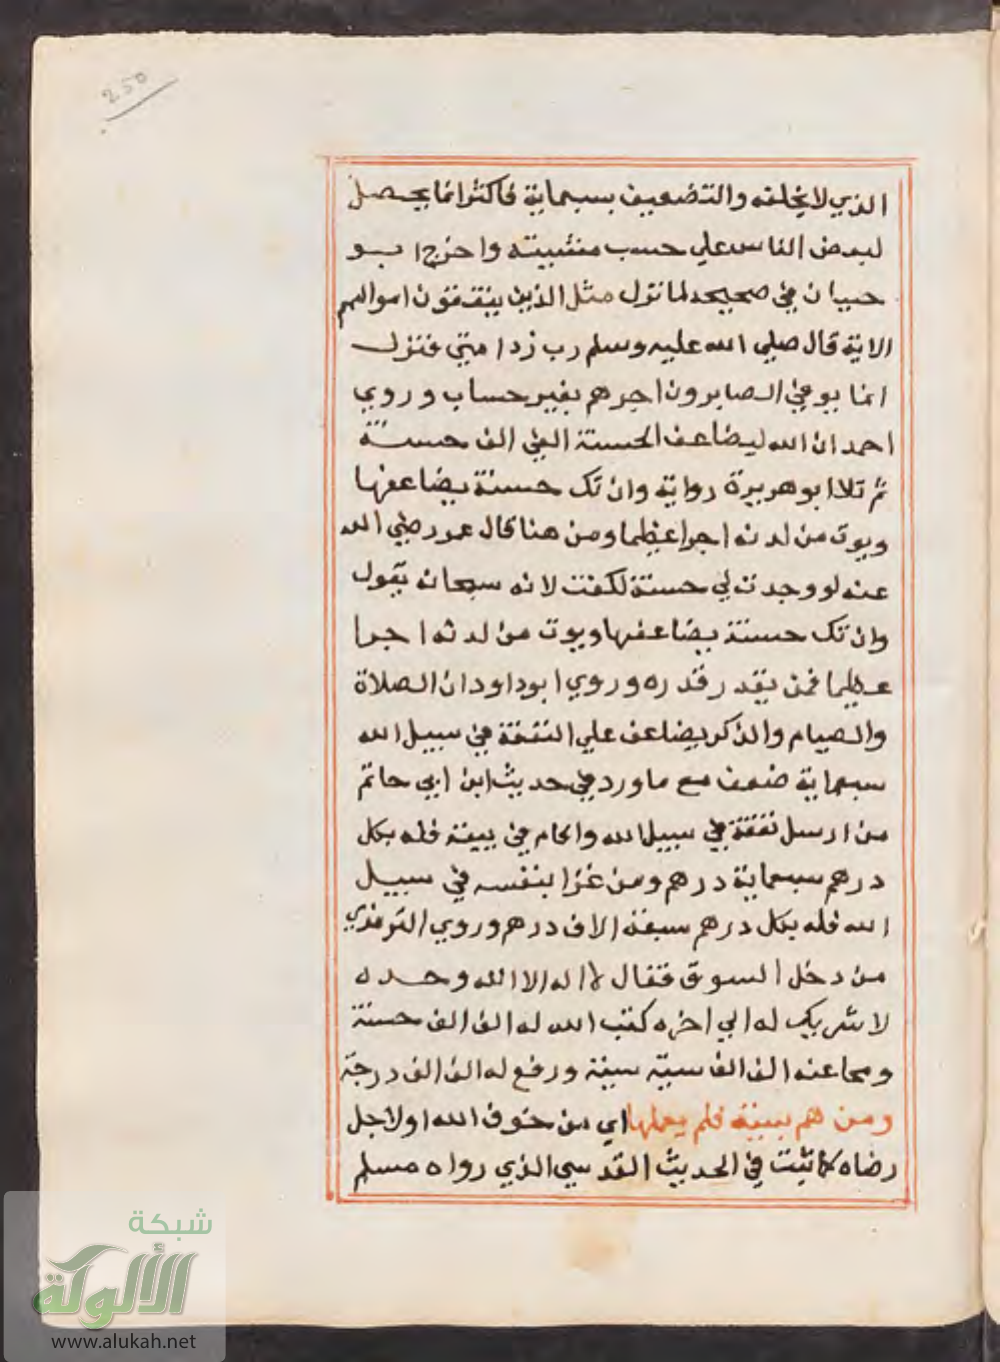 250
الذي لا يخلفه والتضعيف بسبعماية فاكثر انما يحصل
لبعض الناس علي حسب منثبيته واخرج ابو
حبان في صحيحه لما نزل مثل الذين ينفقون اموالهم
الاية قال صلي الله عليه وسلم رب زد امتي فنزل
انما يوفي الصابرون اجرهم بغير حساب وروي
احمد ان الله ليضاعف الحسنة الفي الف حسنة
ثم تلا ابو هريرة رواية وان تك حسنة يضاعفها
ويوت من لدنه اجرا عظيما ومن هنا قال عمر رضي الله
عنه لو وجدت لي حسنة لكفت لانه سبحانه يقول
وان تك حسنة يضاعفها ويوت من لدنه اجرا
عظيما فمن يقدر قدره وروي ابو داود ان الصلاة
والصيام والذكر يضاعف علي النفقة في سبيل الله
سبعماية ضعف مع ما ورد في حديث ابن ابي حاتم
من ارسل نفقة في سبيل الله واقام في بيته فله بكل
درهم سبعماية درهم ومن غزا بنفسه في سبيل
الله فله بكل درهم سبعة الاف درهم وروي الترمذي
من دخل السوق فقال لا اله الا الله وحده
لا شريك له الي اخره كتب الله له الف الف حسنة
ومحا عنه الف الف سيئة ورفع له الف الف درجة
ومن هم بسيئة فلم يعملها اي من خوف الله او لاجل
رضاه كما ثبت في الحديث القدسي الذي رواه مسلم
شبكة
الألوكة
www.alukah.net